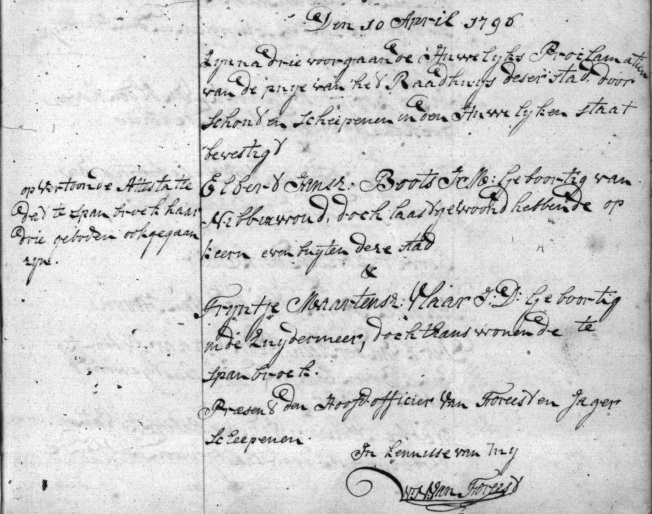 Den 10 April 1796
Zyn na drie voorgaande Huwelyks Proclamatien
van de puye van het Raadhuys deser stad, door
Schout en Scheepenen in den Huwelyken staat
bevestigd
Elbert Jansz: Boots J:M: Geboortig van
Nibbixwoud, doch laast gewoond hebbende op
keern even buyten deze stad
&
Tryntje Maartensz: Vlaar J:D: Geboortig
in de Zuydermeer, doch thans wonende te
Spanbroek.
Præsent den Hoofd officier Van Foreest en Jager
Scheepenen.
In kennisse van my
Van Foreest
op vertoonde Attestatie
dat te Spanbroek haar
drie geboden ook gegaan
zyn.